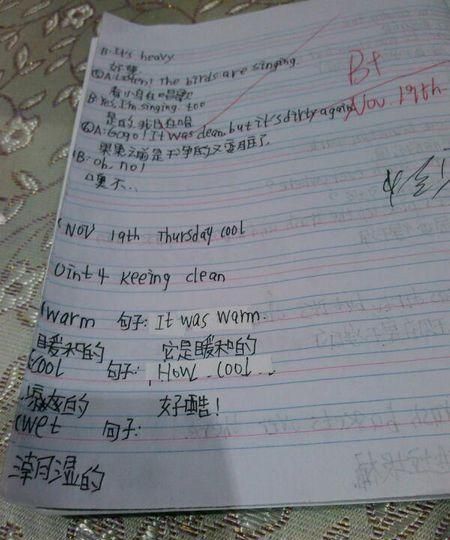 B: It's heavy
好重
②A: Listen! The birds are singing.
有小鸟在唱歌
B: Yes, I'm singing, too
是的,我也在唱
③A: Gogo! It was clean, but it's dirty again
果果之前是干净的又变脏了
B: Oh, no!
噢不..
B+
Nov 19th
Nov 19th Thursday cool
Uint 4 keeing clean
warm 句子: It was warm.
暖和的 它是暖和的
cool 句子: How cool
的 好酷!
wet 句子:
潮湿的